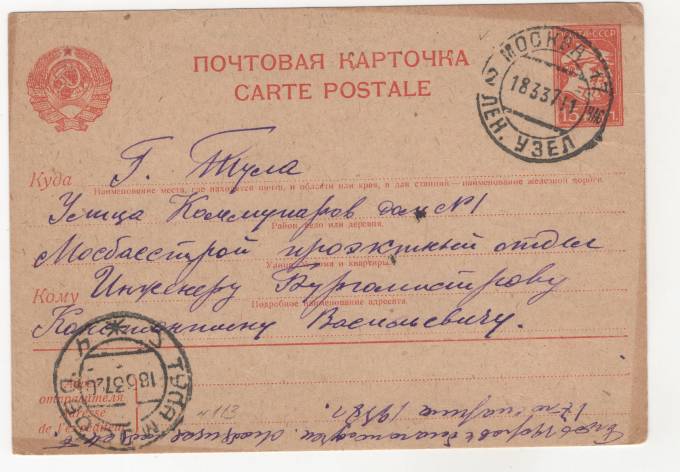 ПОЧТОВАЯ КАРТОЧКА
CARTE POSTALE
СССР
МОСКВА 17
18337 11
2 ЛЕН. УЗЕЛ
Куда Г. Тула
Наименование места, где находится почта, и области или края, а для станций—наименование железной дороги
Улица Коммунаров дом №1
Район, село или деревня
Мосбасстрой проэктный отдел
Улица, и квартиры
Кому Инженеру Бургамистрову
Подробное наименование адресата
Константину Васильевичу.
ТУЛА
18 37
отправителя
adresse
de l'expéditeur
н 113
17 марта